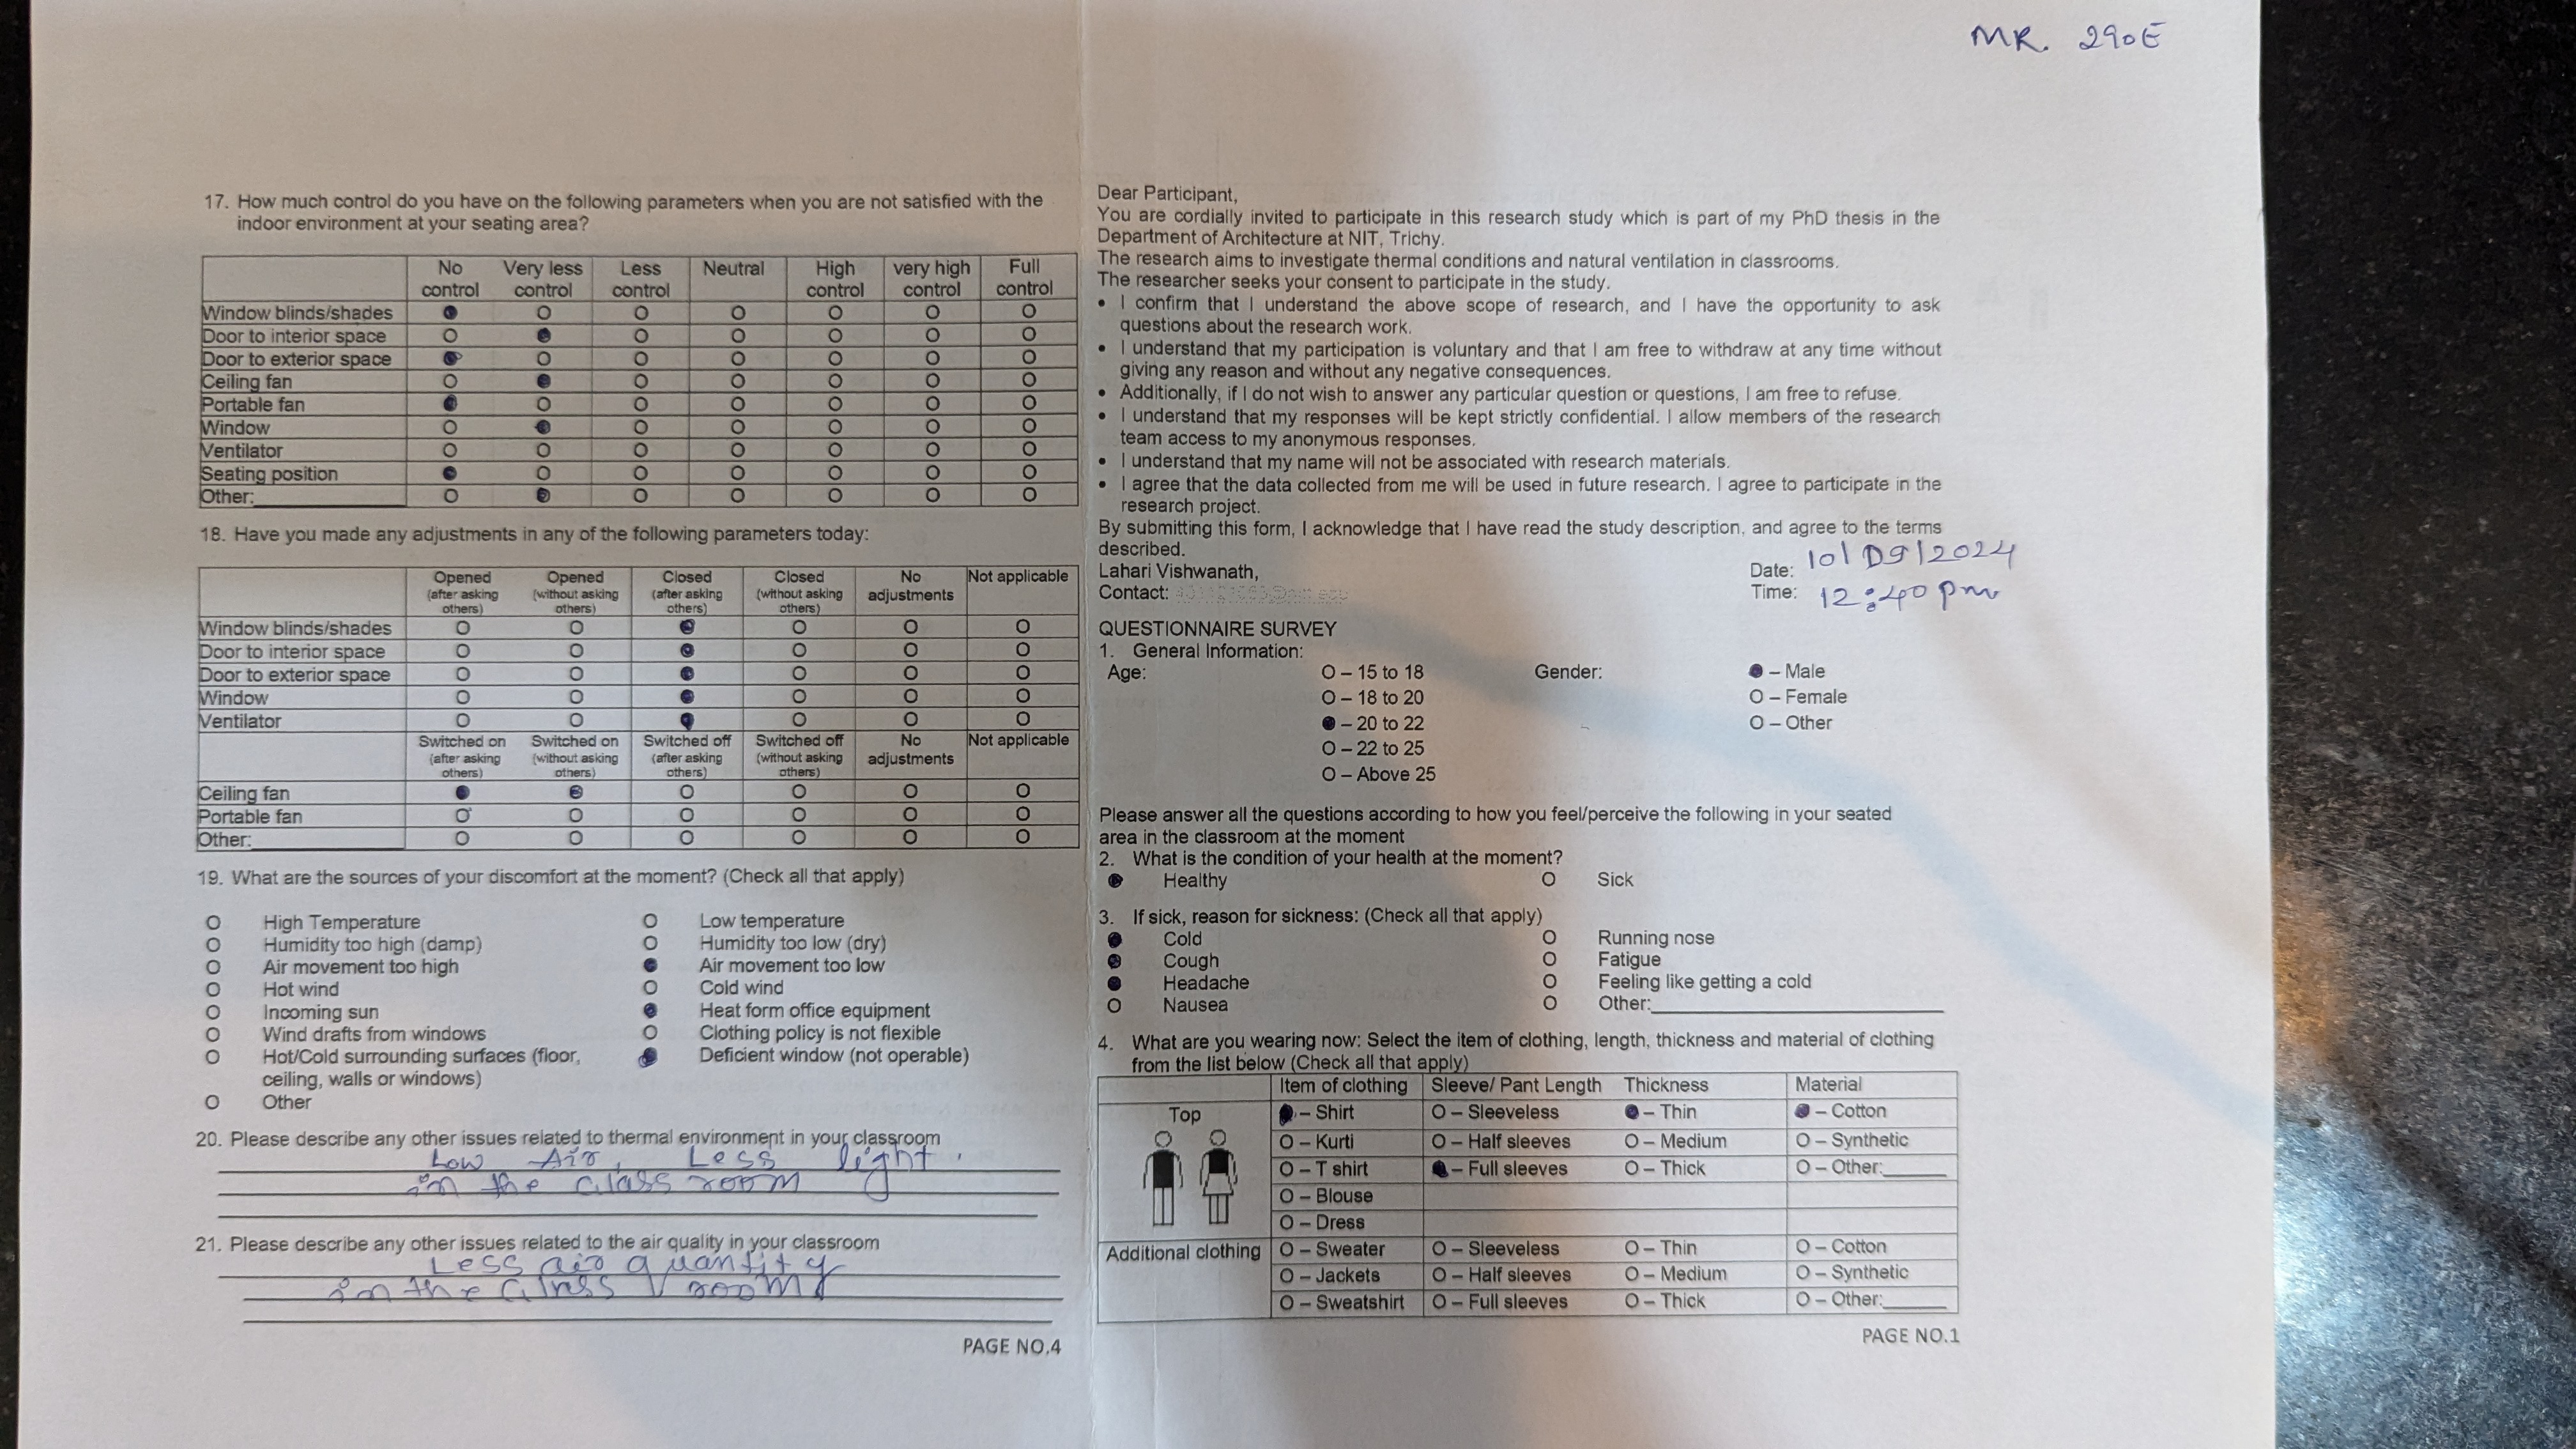 MR. 290E
17. How much control do you have on the following parameters when you are not satisfied with the
indoor environment at your seating area?
No control Very less control Less control Neutral High control very high control Full control
Window blinds/shades
Door to interior space
Door to exterior space
Ceiling fan
Portable fan
Window
Ventilator
Seating position
Other:
18. Have you made any adjustments in any of the following parameters today:
Opened (after asking others) Opened (without asking others) Closed (after asking others) Closed (without asking others) No adjustments Not applicable
Window blinds/shades
Door to interior space
Door to exterior space
Window
Ventilator
Switched on (after asking others) Switched on (without asking others) Switched off (after asking others) Switched off (without asking others) No adjustments Not applicable
Ceiling fan
Portable fan
Other:
19. What are the sources of your discomfort at the moment? (Check all that apply)
High Temperature Low temperature
Humidity too high (damp) Humidity too low (dry)
Air movement too high Air movement too low
Hot wind Cold wind
Incoming sun Heat form office equipment
Wind drafts from windows Clothing policy is not flexible
Hot/Cold surrounding surfaces (floor, Deficient window (not operable)
ceiling, walls or windows)
Other
20. Please describe any other issues related to thermal environment in your classroom
Low Air, Less light.
in the class room
21. Please describe any other issues related to the air quality in your classroom
Less air quantity
in the class room
PAGE NO.4
Dear Participant,
You are cordially invited to participate in this research study which is part of my PhD thesis in the
Department of Architecture at NIT, Trichy.
The research aims to investigate thermal conditions and natural ventilation in classrooms.
The researcher seeks your consent to participate in the study.
• I confirm that I understand the above scope of research, and I have the opportunity to ask
questions about the research work.
• I understand that my participation is voluntary and that I am free to withdraw at any time without
giving any reason and without any negative consequences.
• Additionally, if I do not wish to answer any particular question or questions, I am free to refuse.
• I understand that my responses will be kept strictly confidential. I allow members of the research
team access to my anonymous responses.
• I understand that my name will not be associated with research materials.
• I agree that the data collected from me will be used in future research. I agree to participate in the
research project.
By submitting this form, I acknowledge that I have read the study description, and agree to the terms
described.
Lahari Vishwanath,
Contact:
Date: 10/09/2024
Time: 12:40 pm
QUESTIONNAIRE SURVEY
1. General Information:
Age: O – 15 to 18 Gender: – Male
O – 18 to 20 O – Female
– 20 to 22 O – Other
O – 22 to 25
O – Above 25
Please answer all the questions according to how you feel/perceive the following in your seated
area in the classroom at the moment
2. What is the condition of your health at the moment?
Healthy O Sick
3. If sick, reason for sickness: (Check all that apply)
Cold O Running nose
Cough O Fatigue
Headache O Feeling like getting a cold
O Nausea O Other:
4. What are you wearing now: Select the item of clothing, length, thickness and material of clothing
from the list below (Check all that apply)
Item of clothing Sleeve/ Pant Length Thickness Material
Top – Shirt O – Sleeveless – Thin – Cotton
O – Kurti O – Half sleeves O – Medium O – Synthetic
O – T shirt – Full sleeves O – Thick O – Other:
O – Blouse
O – Dress
Additional clothing O – Sweater O – Sleeveless O – Thin O – Cotton
O – Jackets O – Half sleeves O – Medium O – Synthetic
O – Sweatshirt O – Full sleeves O – Thick O – Other:
PAGE NO.1